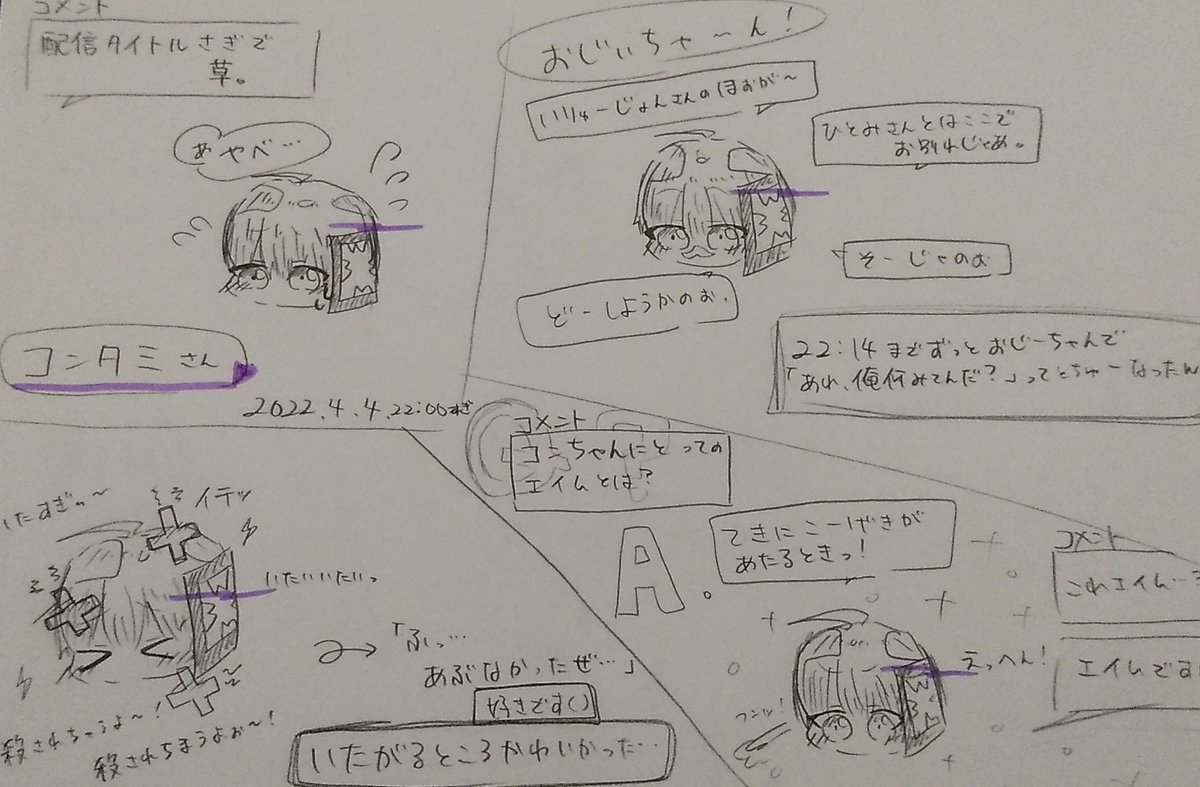 コメント
配信タイトルさぎで
草。
あやべ…
コンタミさん
2022.4.4.22:00すぎ
おじいちゃ〜ん!
いりゅーじょんさんのほおが〜
ひとみさんとはここで
お別れじゃあ。
そーじゃのお
どーしようかのお、
22:14までずっとおじーちゃんで
「あれ、俺何みてんだ?」ってとちゅーなったw
いたすぎぃ〜
イテッ
いたいいたいっ
殺されちゃうよ〜!
殺されちまうよぉ〜!
「ふっ…
あぶなかったぜ…」
好きです()
いたがるところかわいかった…
コメント
コンちゃんにとっての
エイムとは?
A.
てきにこーげきが
あたるときっ!
えっへん!
フンッ!
コメント
これエイム…
エイムです